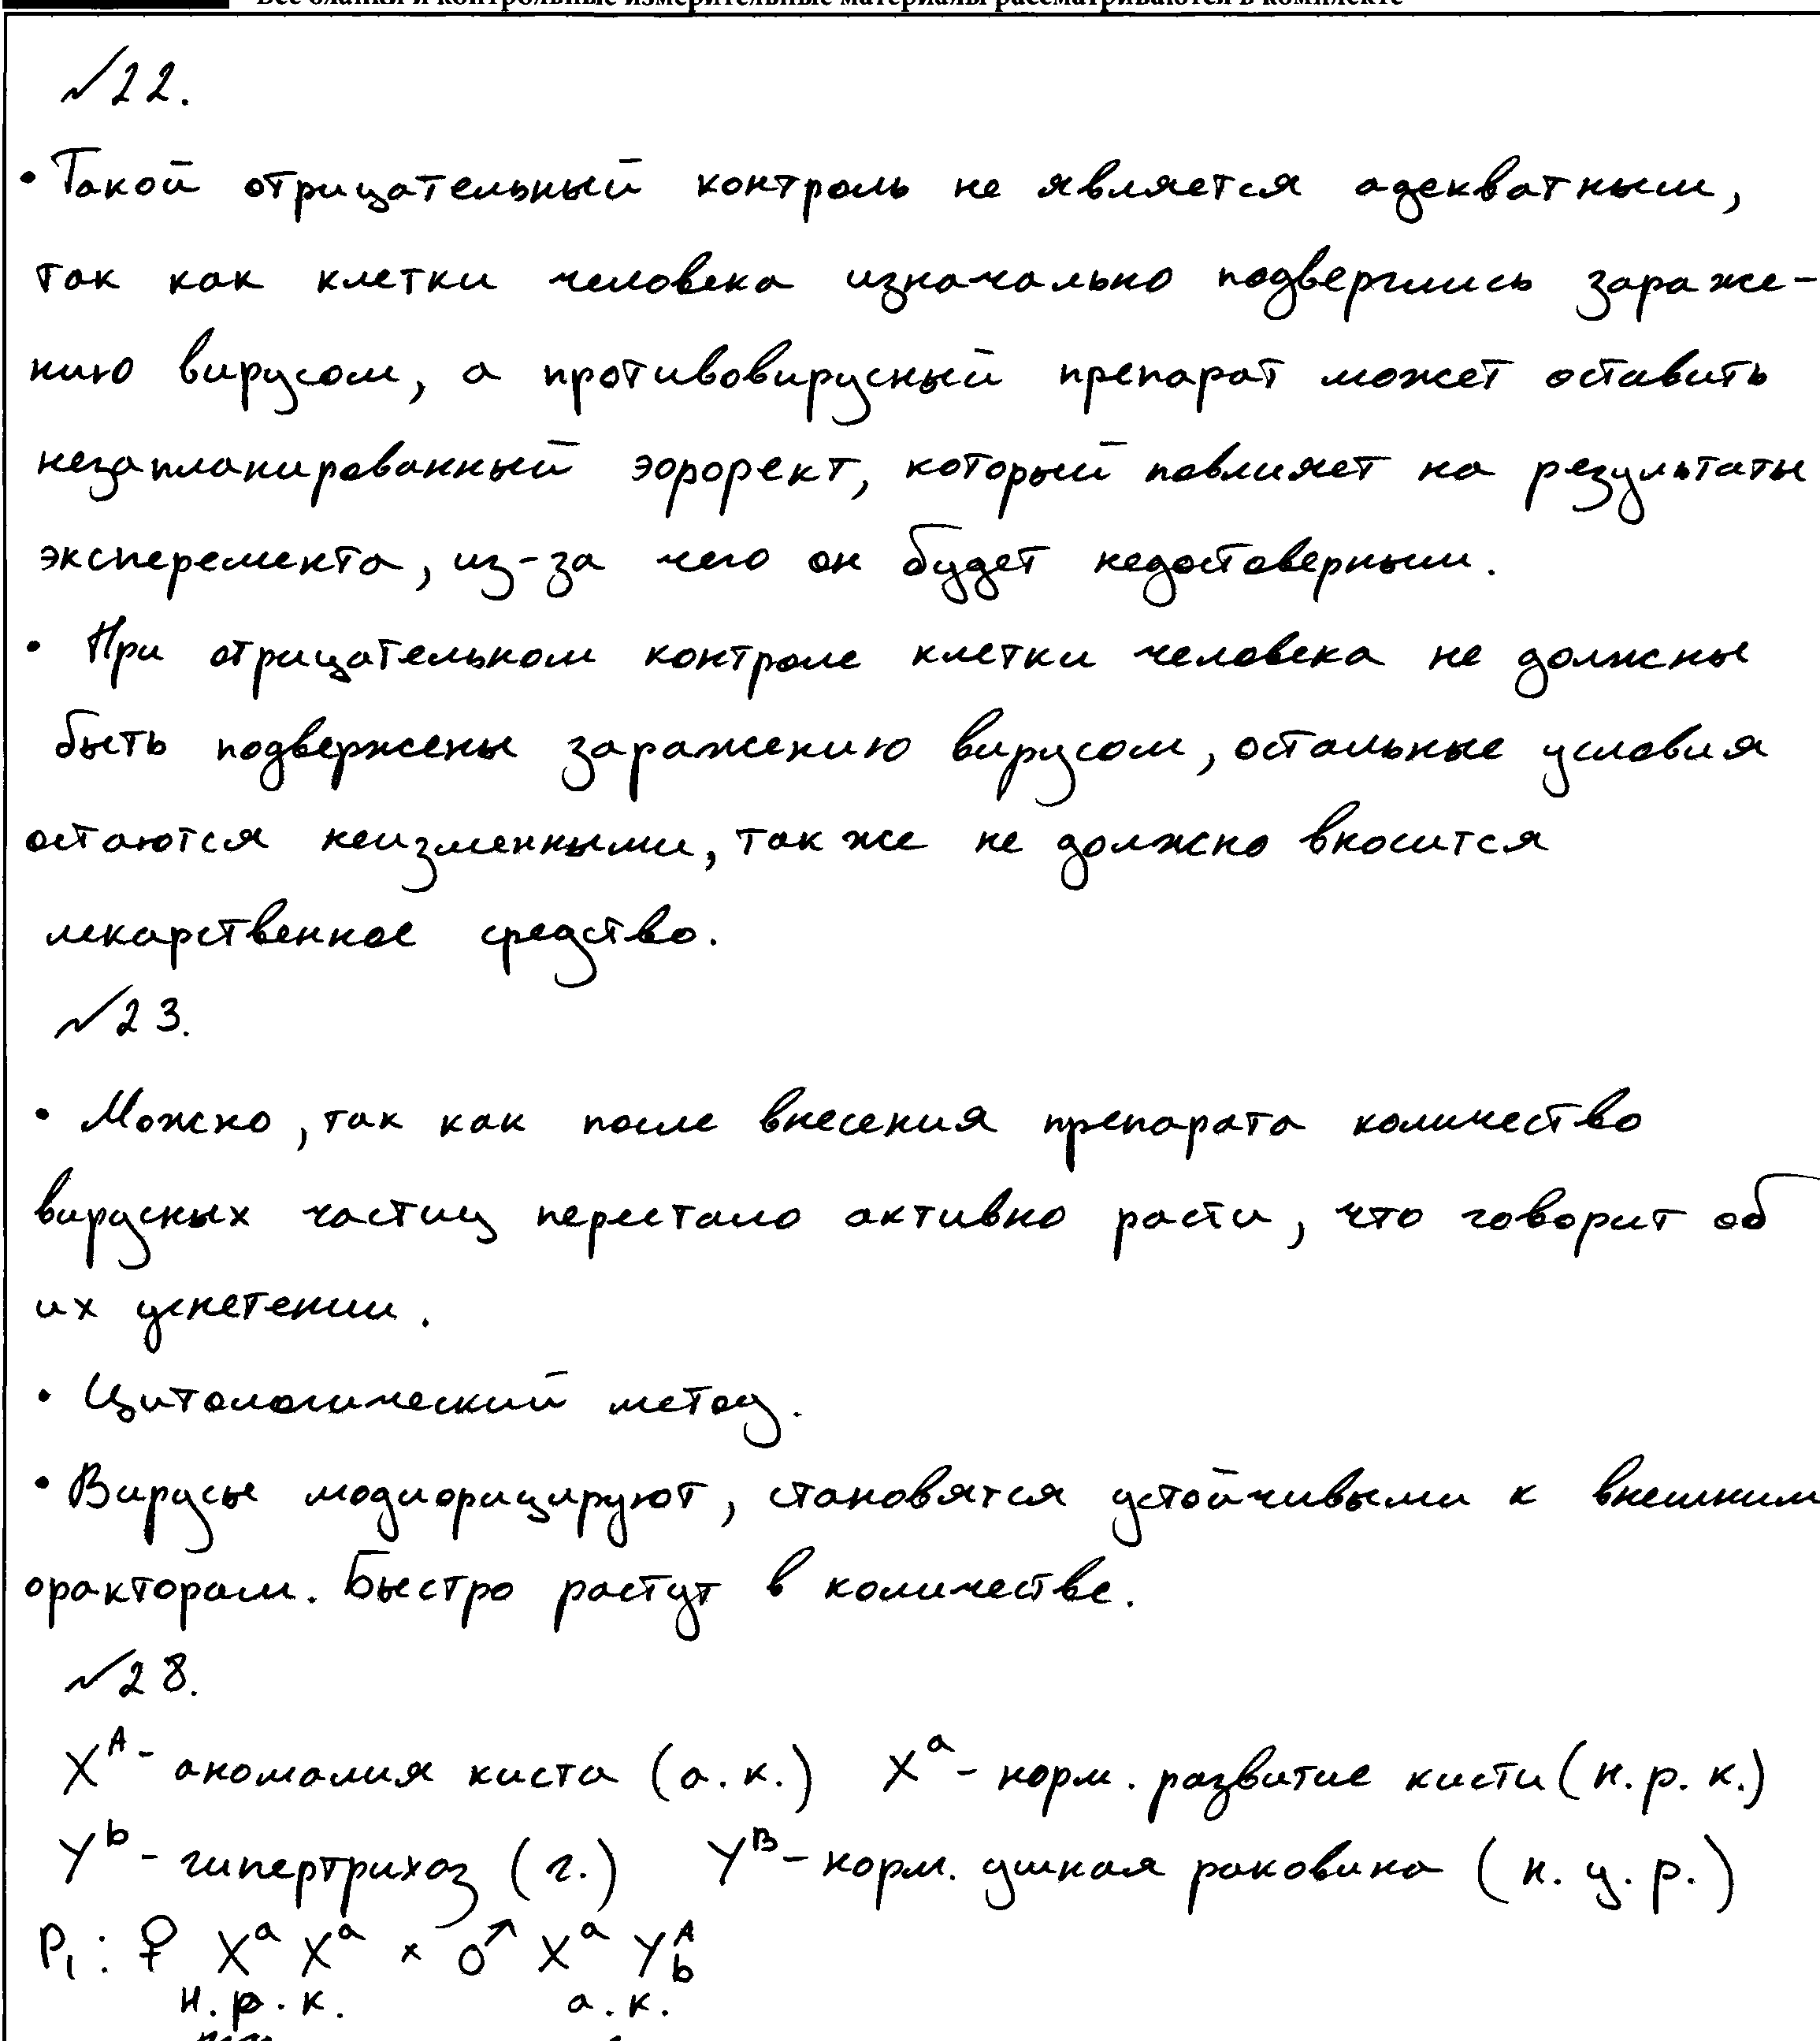 Все бланки и контрольные измерительные материалы рассматриваются в комплекте
№22.
• Такой отрицательный контроль не является адекватным,
так как клетки человека изначально подверглись зараже-
нию вирусом, а противовирусный препарат может оставить
незапланированный эффект, который повлияет на результаты
эксперемента, из-за чего он будет недостоверным.
• При отрицательном контроле клетки человека не должны
быть подвержены заражению вирусом, остальные условия
остаются неизменными, так же не должно вносится
лекарственное средство.
№23.
• Можно, так как после внесения препарата количество
вирусных частиц перестало активно расти, что говорит об
их угнетении.
• Цитологический метод.
• Вирусы модифицируют, становятся устойчивыми к внешним
факторам. Быстро растут в количестве.
№28.
X^A - аномалия киста (а.к.) X^a - норм. развитие кисти (н.р.к.)
Y^b - гипертрихоз (г.) Y^B - норм. ушная раковина (н.у.р.)
P₁: ♀ X^a X^a × ♂ X^a Y^A_b
н.р.к. а.к.